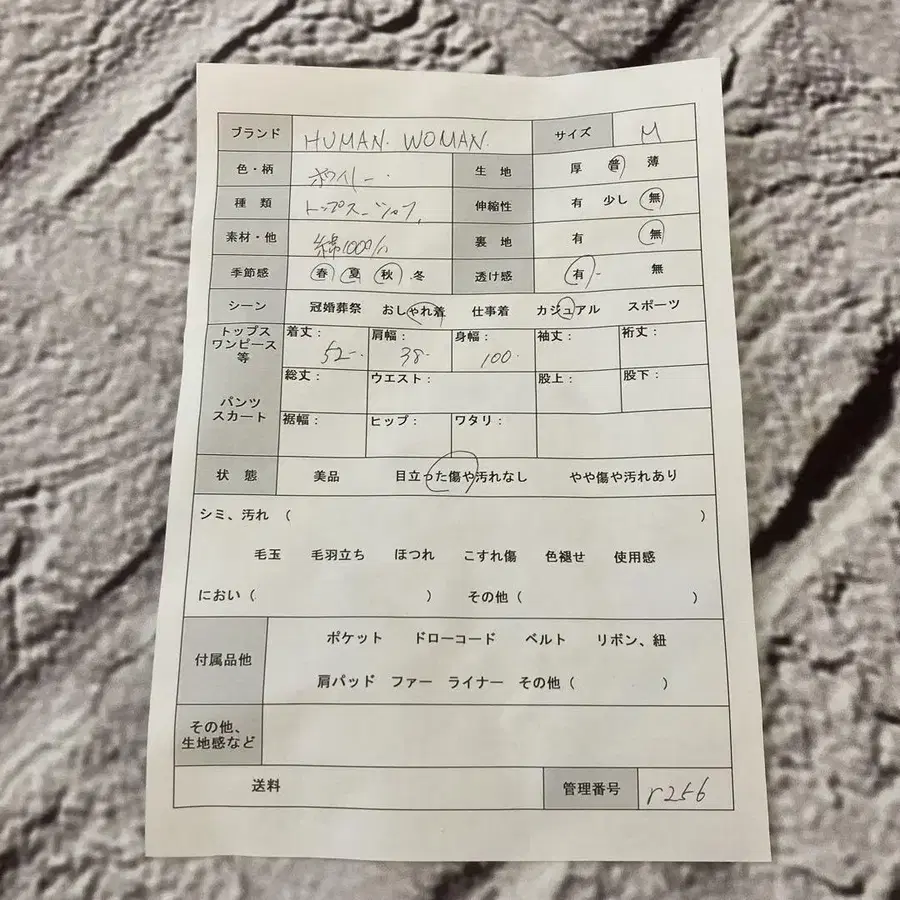 ブランド HUMAN. WOMAN. サイズ M
色・柄 ホワイト 生地 厚 普 薄
種類 トップス 伸縮性 有 少し 無
素材・他 綿100% 裏地 有 無
季節感 春 夏 秋 冬 透け感 有 無
シーン 冠婚葬祭 おしゃれ着 仕事着 カジュアル スポーツ
トップス ワンピース 等 着丈: 52 肩幅: 38 身幅: 100 袖丈: 裄丈:
パンツ スカート 総丈: ウエスト: 股上: 股下:
裾幅: ヒップ: ワタリ:
状態 美品 目立った傷や汚れなし やや傷や汚れあり
シミ、汚れ ( )
毛玉 毛羽立ち ほつれ こすれ傷 色褪せ 使用感
におい ( ) その他 ( )
付属品他 ポケット ドローコード ベルト リボン、紐
肩パッド ファー ライナー その他 ( )
その他、
生地感など
送料 管理番号 r256